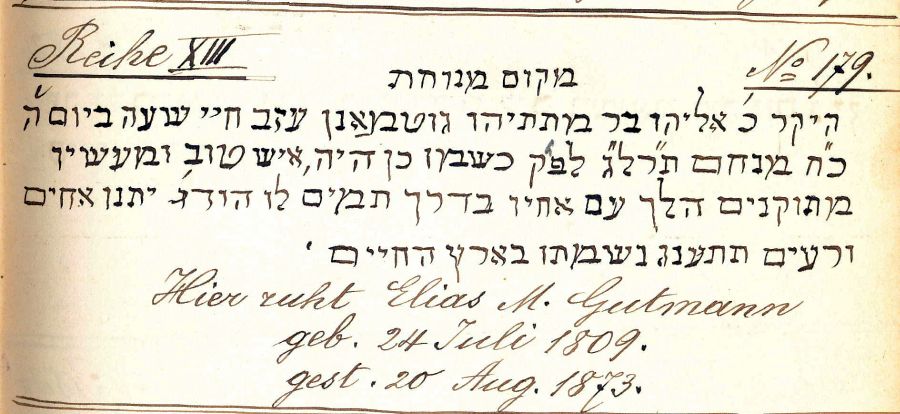 Reihe XIII
No 179.
מקום מנוחת
היקר כ' אליהו בר מתתיהו גוטמאנן עזב חיי שעה ביום ה'
כ"ח מנחם תרל"ג לפ"ק כשמו כן היה, איש טוב ומעשיו
מתוקנים הלך עם אחיו בדרך תמים לו יתנו אחים
ורעים תתענג נשמתו בארץ החיים.
Hier ruht Elias M. Gutmann
geb. 24 Juli 1809.
gest. 20 Aug. 1873.